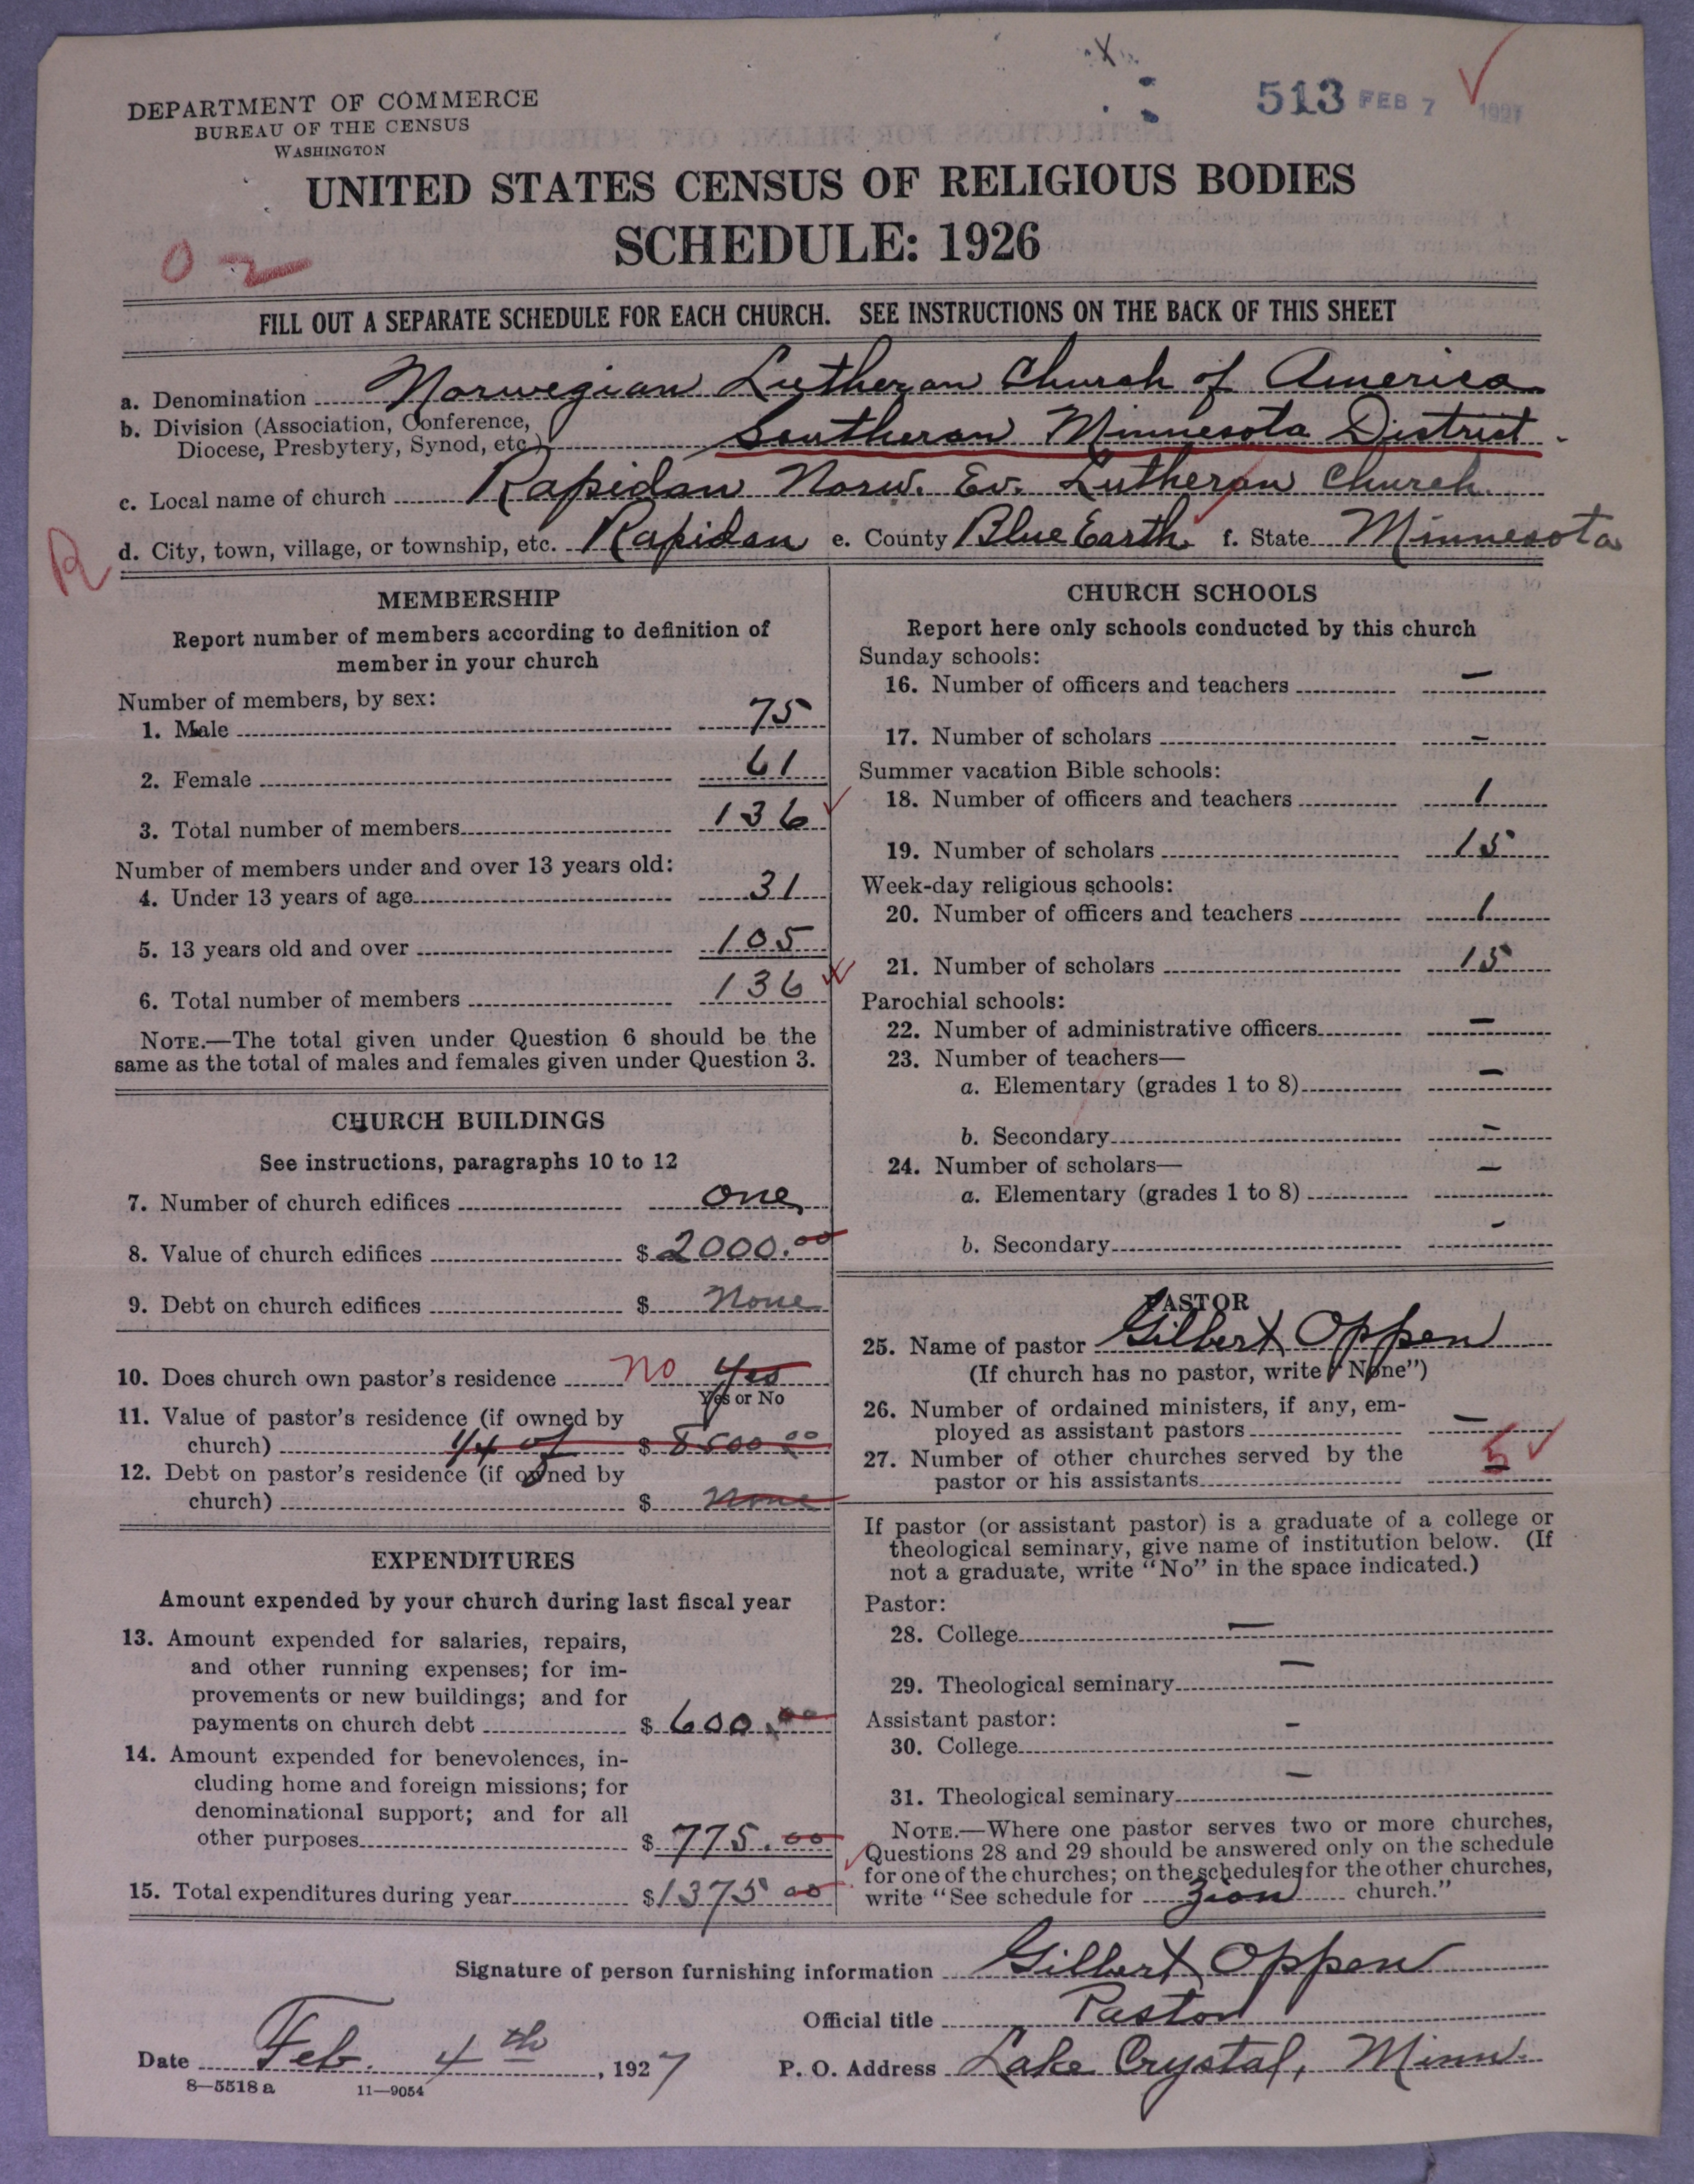 513 FEB 7 1927
DEPARTMENT OF COMMERCE
BUREAU OF THE CENSUS
WASHINGTON
UNITED STATES CENSUS OF RELIGIOUS BODIES
SCHEDULE: 1926
02
FILL OUT A SEPARATE SCHEDULE FOR EACH CHURCH. SEE INSTRUCTIONS ON THE BACK OF THIS SHEET
a. Denomination Norwegian Lutheran Church of America
b. Division (Association, Conference,
Diocese, Presbytery, Synod, etc.) Southern Minnesota District
c. Local name of church Rapidan Norw. Ev. Lutheran Church
R
d. City, town, village, or township, etc. Rapidan e. County Blue Earth f. State Minnesota
MEMBERSHIP
Report number of members according to definition of
member in your church
Number of members, by sex:
1. Male 75
2. Female 61
3. Total number of members 136
Number of members under and over 13 years old:
4. Under 13 years of age 31
5. 13 years old and over 105
6. Total number of members 136
NOTE.—The total given under Question 6 should be the
same as the total of males and females given under Question 3.
CHURCH BUILDINGS
See instructions, paragraphs 10 to 12
7. Number of church edifices one
8. Value of church edifices $ 2000.00
9. Debt on church edifices $ None
10. Does church own pastor's residence No Yes
Yes or No
11. Value of pastor's residence (if owned by
church) 1/4 of $ 8500 00
12. Debt on pastor's residence (if owned by
church) $ none
EXPENDITURES
Amount expended by your church during last fiscal year
13. Amount expended for salaries, repairs,
and other running expenses; for im-
provements or new buildings; and for
payments on church debt $ 600.00
14. Amount expended for benevolences, in-
cluding home and foreign missions; for
denominational support; and for all
other purposes $ 775.00
15. Total expenditures during year $ 1375 00
CHURCH SCHOOLS
Report here only schools conducted by this church
Sunday schools:
16. Number of officers and teachers —
17. Number of scholars —
Summer vacation Bible schools:
18. Number of officers and teachers 1
19. Number of scholars 15
Week-day religious schools:
20. Number of officers and teachers 1
21. Number of scholars 15
Parochial schools:
22. Number of administrative officers —
23. Number of teachers—
a. Elementary (grades 1 to 8) —
b. Secondary —
24. Number of scholars— —
a. Elementary (grades 1 to 8)
b. Secondary —
PASTOR
25. Name of pastor Gilbert Oppen
(If church has no pastor, write "None")
26. Number of ordained ministers, if any, em-
ployed as assistant pastors —
27. Number of other churches served by the
pastor or his assistants 5
If pastor (or assistant pastor) is a graduate of a college or
theological seminary, give name of institution below. (If
not a graduate, write "No" in the space indicated.)
Pastor:
28. College —
29. Theological seminary —
Assistant pastor:
30. College —
31. Theological seminary —
NOTE.—Where one pastor serves two or more churches,
Questions 28 and 29 should be answered only on the schedule
for one of the churches; on the schedules for the other churches,
write "See schedule for Zion church."
Signature of person furnishing information Gilbert Oppen
Official title Pastor
Date Feb. 4th, 1927 P. O. Address Lake Crystal, Minn.
8—5518 a 11—9054